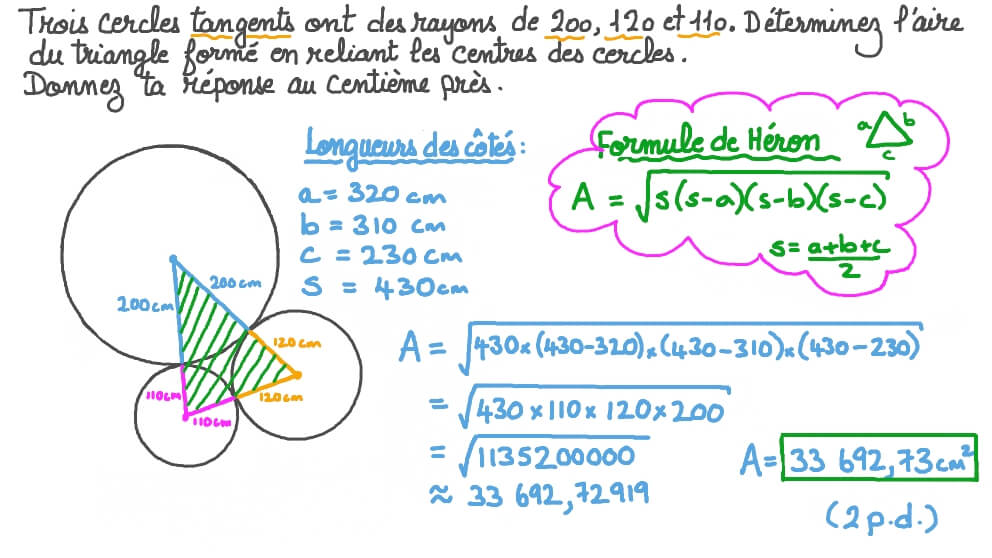 Trois cercles tangents ont des rayons de 200, 120 et 110. Déterminez l'aire
du triangle formé en reliant les centres des cercles.
Donnez ta réponse au centième près.
Longueurs des côtés:
a = 320 cm
b = 310 cm
c = 230 cm
s = 430cm
Formule de Héron
a b
c
A = √s(s-a)(s-b)(s-c)
s = a+b+c
2
200cm
200cm
120cm
120cm
110cm
110cm
A = √430×(430-320)×(430-310)×(430-230)
= √430×110×120×200
= √1135200000
≈ 33 692,72919
A = 33 692,73cm²
(2 p.d.)